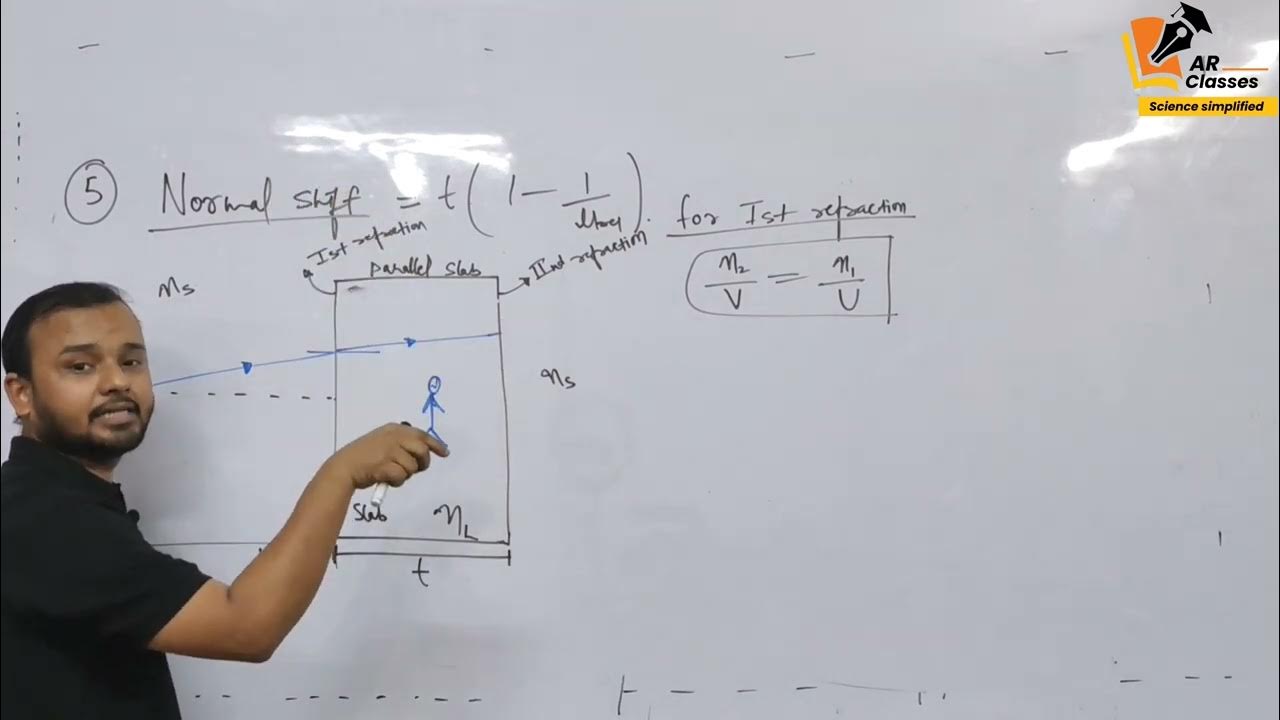 AR
Classes
Science simplified
5 Normal shift = t(1 - 1/μrel).
for Ist refraction
Ist refraction
parallel slab
IInd refraction
n2/V = n1/U
ns
ns
slab
nL
t